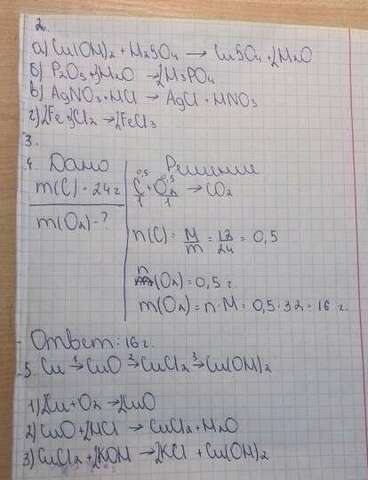 2.
а) Cu(OH)2 + H2SO4 → CuSO4 + 2H2O
б) P2O5 + 3H2O → 2H3PO4
в) AgNO3 + HCl → AgCl + HNO3
г) 2Fe + 3Cl2 → 2FeCl3
3.
4. Дано
m(C) = 24г
m(O2) - ?
Решение
0,5 0,5
C + O2 → CO2
1 1
n(C) = M/m = 12/24 = 0,5
n(O2) = 0,5 г.
m(O2) = n · M = 0,5 · 32 = 16 г.
Ответ: 16 г.
5. Cu 1→ CuO 2→ CuCl2 3→ Cu(OH)2
1) 2Cu + O2 → 2CuO
2) CuO + 2HCl → CuCl2 + H2O
3) CuCl2 + 2KOH → 2KCl + Cu(OH)2